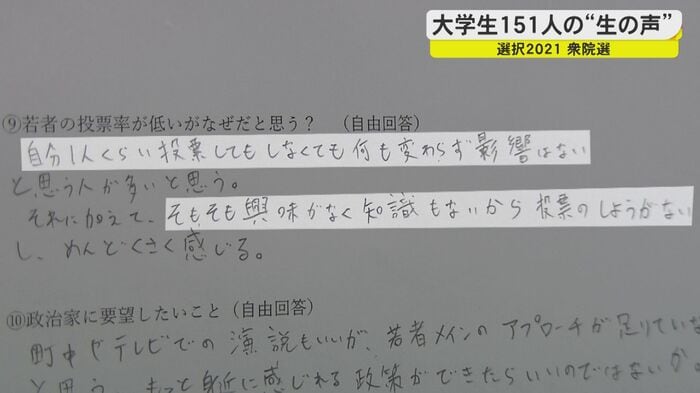 大学生151人の“生の声”
選択2021 衆院選
⑨若者の投票率が低いがなぜだと思う？（自由回答）
自分1人くらい投票してもしなくても何も変わらず影響はない
と思う人が多いと思う。
それに加えて、そもそも興味がなく知識もないから投票のしようがない
し、めんどくさく感じる。
⑩政治家に要望したいこと（自由回答）
町中やテレビでの演説もいいが、若者メインのアプローチが足りていな
と思う。もっと身近に感じれる政策ができたらいいのではないか。